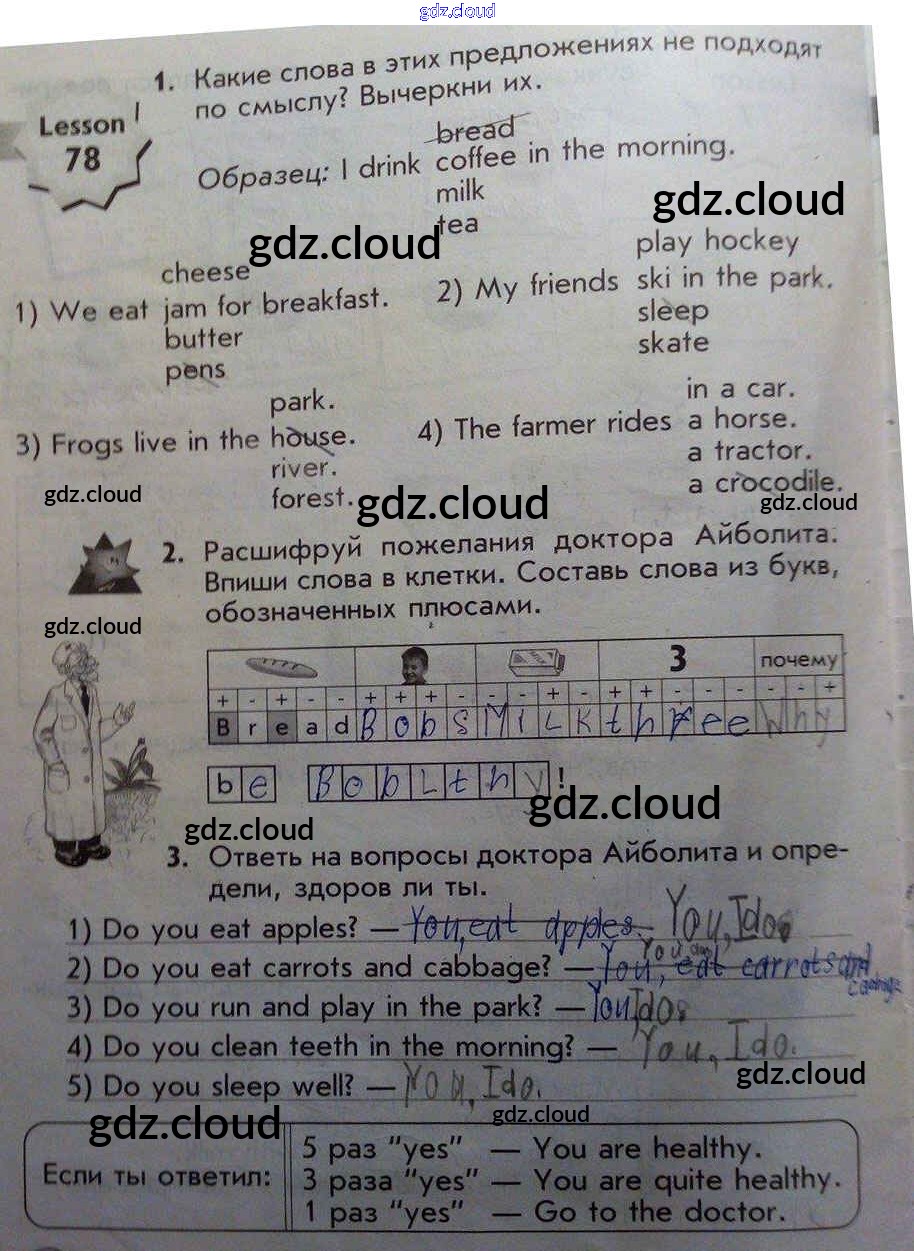 gdz.cloud
1. Какие слова в этих предложениях не подходят
по смыслу? Вычеркни их.
Lesson
78
bread
Образец: I drink coffee in the morning.
milk
tea
gdz.cloud
gdz.cloud
cheese
1) We eat jam for breakfast.
butter
pens
play hockey
2) My friends ski in the park.
sleep
skate
park.
3) Frogs live in the house.
river.
forest.
in a car.
4) The farmer rides a horse.
a tractor.
a crocodile.
gdz.cloud
gdz.cloud
gdz.cloud
2. Расшифруй пожелания доктора Айболита.
Впиши слова в клетки. Составь слова из букв,
обозначенных плюсами.
gdz.cloud
3 почему
+ - + - - + + + - - - + - + + - - - - - +
B r e a d B o b s M i L k t h r e e W h y
b e B o b L t h y !
gdz.cloud
gdz.cloud
3. Ответь на вопросы доктора Айболита и опре-
дели, здоров ли ты.
1) Do you eat apples? — You, eat apples. You, I do.
2) Do you eat carrots and cabbage? — You, eat carrots and
cabbage
3) Do you run and play in the park? — You I do.
4) Do you clean teeth in the morning? — You, I do.
5) Do you sleep well? — You, I do.
gdz.cloud
gdz.cloud
gdz.cloud
Если ты ответил:
5 раз "yes" — You are healthy.
3 раза "yes" — You are quite healthy.
1 раз "yes" — Go to the doctor.